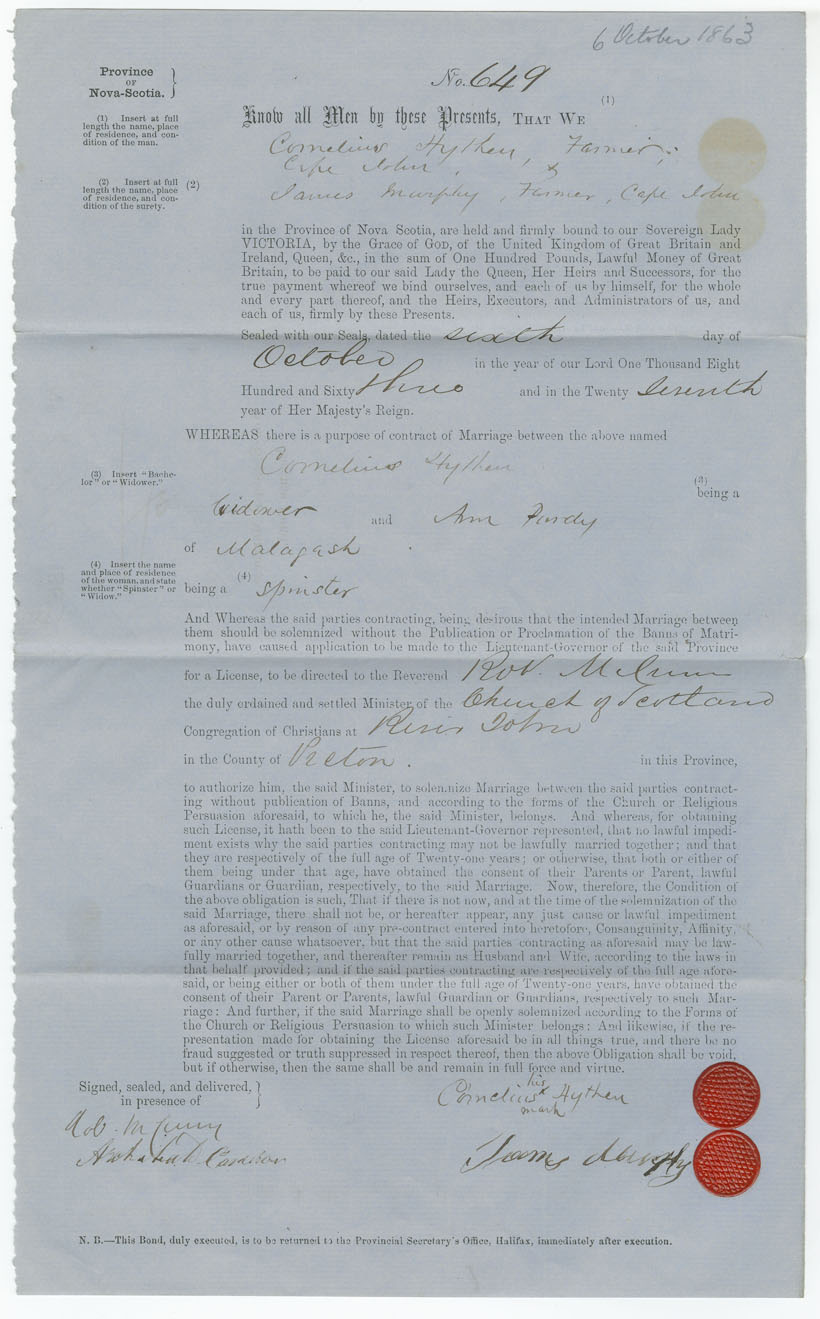 6 October 1863
Province
OF
Nova-Scotia.
No. 649
(1) Insert at full
length the name, place
of residence, and con-
dition of the man.
(1)
Know all Men by these Presents, THAT WE
Cornelius Hythen, Farmer,
Cape John, &
(2) Insert at full
length the name, place
of residence, and con-
dition of the surety.
(2)
James Murphy, Farmer, Cape John
in the Province of Nova Scotia, are held and firmly bound to our Sovereign Lady
VICTORIA, by the Grace of GOD, of the United Kingdom of Great Britain and
Ireland, Queen, &c., in the sum of One Hundred Pounds, Lawful Money of Great
Britain, to be paid to our said Lady the Queen, Her Heirs and Successors, for the
true payment whereof we bind ourselves, and each of us by himself, for the whole
and every part thereof, and the Heirs, Executors, and Administrators of us, and
each of us, firmly by these Presents.
Sealed with our Seals, dated the sixth day of
October in the year of our Lord One Thousand Eight
Hundred and Sixty three and in the Twenty Seventh
year of Her Majesty's Reign.
WHEREAS there is a purpose of contract of Marriage between the above named
Cornelius Hythen
(3) Insert "Bache-
lor" or "Widower."
(3)
being a
Widower and Ann Purdy
of Malagash.
(4) Insert the name
and place of residence
of the woman, and state
whether "Spinster" or
"Widow."
being a (4) Spinster
And Whereas the said parties contracting, being desirous that the intended Marriage between
them should be solemnized without the Publication or Proclamation of the Banns of Matri-
mony, have caused application to be made to the Lieutenant-Governor of the said Province
for a License, to be directed to the Reverend Rob. McCunn
the duly ordained and settled Minister of the Church of Scotland
Congregation of Christians at River John
in the County of Pictou. in this Province,
to authorize him, the said Minister, to solemnize Marriage between the said parties contract-
ing without publication of Banns, and according to the forms of the Church or Religious
Persuasion aforesaid, to which he, the said Minister, belongs. And whereas, for obtaining
such License, it hath been to the said Lieutenant-Governor represented, that no lawful impedi-
ment exists why the said parties contracting may not be lawfully married together; and that
they are respectively of the full age of Twenty-one years; or otherwise, that both or either of
them being under that age, have obtained the consent of their Parents or Parent, lawful
Guardians or Guardian, respectively, to the said Marriage. Now, therefore, the Condition of
the above obligation is such, That if there is not now, and at the time of the solemnization of the
said Marriage, there shall not be, or hereafter appear, any just cause or lawful impediment
as aforesaid, or by reason of any pre-contract entered into heretofore, Consanguinity, Affinity,
or any other cause whatsoever, but that the said parties contracting as aforesaid may be law-
fully married together, and thereafter remain as Husband and Wife, according to the laws in
that behalf provided; and if the said parties contracting are respectively of the full age afore-
said, or being either or both of them under the full age of Twenty-one years, have obtained the
consent of their Parent or Parents, lawful Guardian or Guardians, respectively to such Mar-
riage: And further, if the said Marriage shall be openly solemnized according to the Forms of
the Church or Religious Persuasion to which such Minister belongs: And likewise, if the re-
presentation made for obtaining the License aforesaid be in all things true, and there be no
fraud suggested or truth suppressed in respect thereof, then the above Obligation shall be void,
but if otherwise, then the same shall be and remain in full force and virtue.
Signed, sealed, and delivered,
in presence of
his
Cornelius x Hythen
mark
Rob. McCunn
James Murphy
N. B.—This Bond, duly executed, is to be returned to the Provincial Secretary's Office, Halifax, immediately after execution.